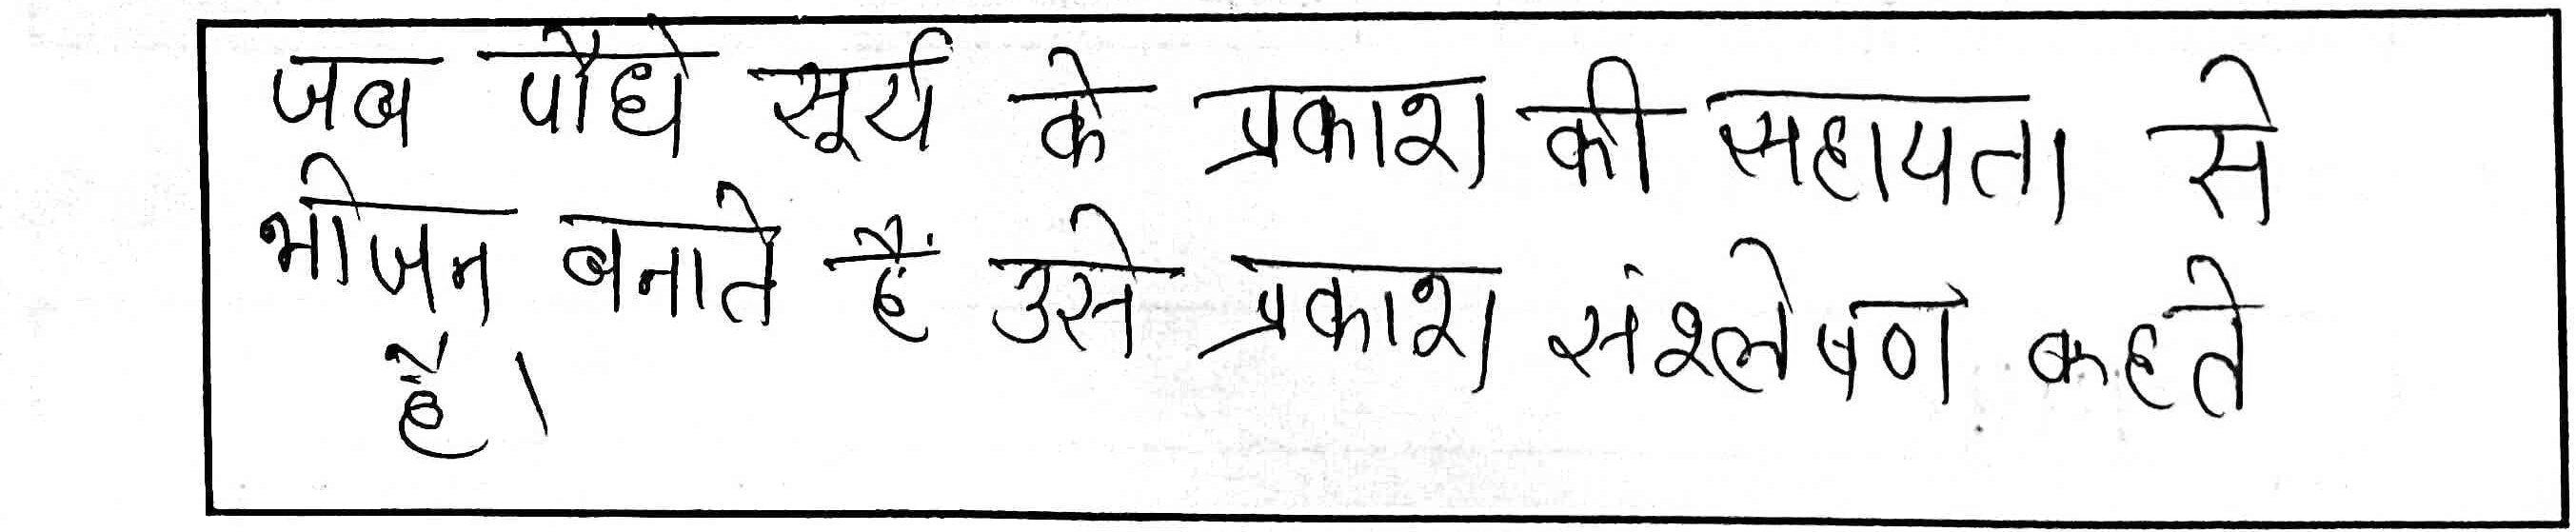 जब पौधे सूर्य के प्रकाश की सहायता से
भोजन बनाते हैं उसे प्रकाश संश्लेषण कहते
है।